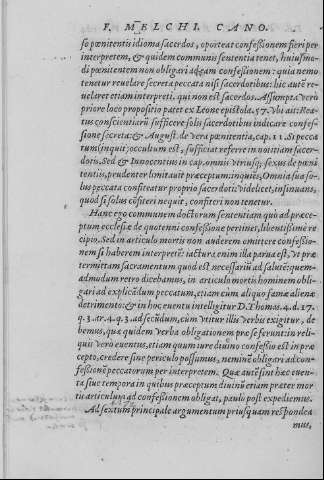 F. MELCHI. CANO.
so pœnitentis idioma sacerdos, oporteat confessionem fieri per
interpretem, & quidem communis sententia tenet, huiusmo-
di pœnitentem non obligari ad eam confessionem: quia nemo
tenetur reuelare secreta peccata nisi sacerdotibus: hic autē re-
uelaret etiam interpreti, qui non est sacerdos. Assumpta verò
priore loco propositio patet ex Leone epistola. 57. Vbi ait: Rea-
tus conscientiarū sufficere solis sacerdotibus indicare confes-
sione secreta: & August. de vera pœnitentia, cap. 11. Si pecca
tum (inquit) occultum est, sufficiat referre in notitiam sacer-
dotis. Sed & Innocentius in cap. omnis vtriusq; sexus de pœni
tentiis, prudenter limitauit præceptum: inquiēs, Omnia sua so-
lus peccata confiteatur proprio sacerdoti: videlicet, insinuans,
quod si solus cōfiteri nequit, confiteri non tenetur.
Hanc ego communem doctorum sententiam quò ad præce-
ptum ecclesiæ de quotenni confessione pertinet, libentissime re
cipio. Sed in articulo mortis non auderem omittere confessio-
nem si haberem interpretē: iactura enim illa paria est, vt præ
termittam sacramentum quod est necessariū ad salutē: quem-
admodum retro dicebamus, in articulo mortis hominem obli-
gari ad explicādum peccatum, etiam cum aliquo famæ alienæ
detrimento: & in hoc euentu intelligitur D. Thomas. 4. d. 17.
q. 3. ar. 4. q. 3. ad secūdum, cum vltim⁹ illis verbis exigitur, de
bemus, quæ quidem verba obligationem præ se ferunt: in reli-
quis vero euentus, etiam quum iure diuino confessio est in præ
cepto, credere sine periculo possumus, neminē obligari ad con-
fessionē peccatorum per interpretem. Quæ autē sint hæc euen-
ta siue tempora in quibus præceptum diuinū etiam præter mor
tis articulum ad confessionem obligat, paulo post expediemus.
Ad sextum principale argumentum priusquam respondea
mus,